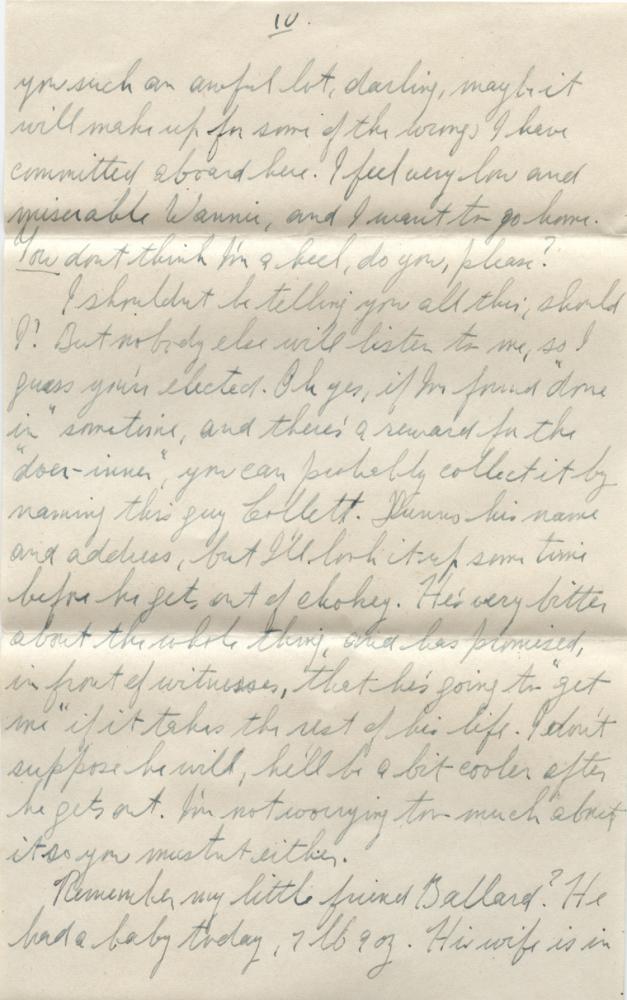 IV.
you such an awful lot, darling, maybe it
will make up for some of the wrongs I have
committed aboard here. I feel very low and
miserable Wannie, and I want to go home.
You don't think I'm a heel, do you, please?
I shouldn't be telling you all this, should
I? But nobody else will listen to me, so I
guess you're elected. Oh yes, if I'm found "done
in" sometime, and there's a reward for the
"doer-inner", you can probably collect it by
naming this guy Collett. Dunno his name
and address, but I'll look it up some time
before he gets out of chokey. He's very bitter
about the whole thing, and has promised,
in front of witnesses, that he's going to "get
me" if it takes the rest of his life. I don't
suppose he will, he'll be a bit cooler after
he gets out. I'm not worrying too much about
it so you mustn't either.
Remember my little friend Ballard? He
had a baby today, 7 lb 9 oz. His wife is in